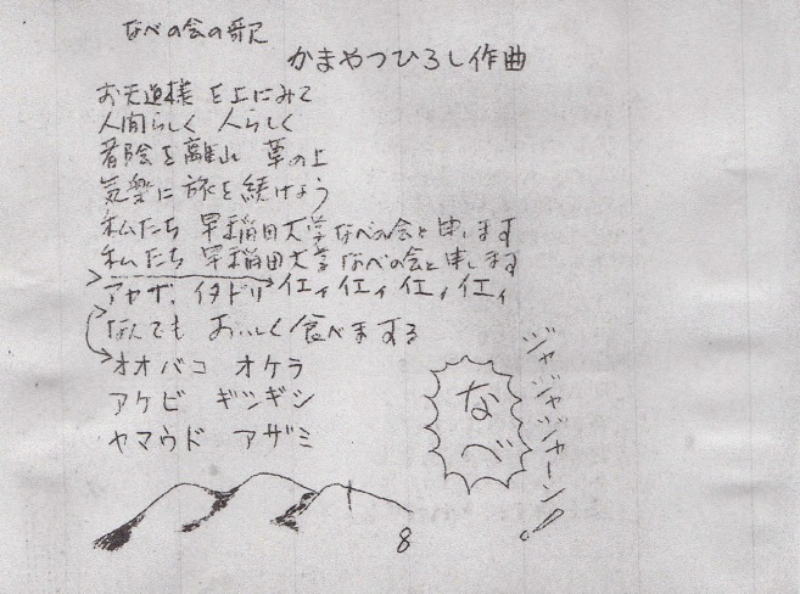 なべの会の歌
かまやつひろし作曲
お天道様 を上にみて
人間らしく 人らしく
を離れ 草の上
気楽に 旅を続けよう
私たち 早稲田大学なべの会と申します
私たち 早稲田大学なべの会と申します
アカザ. イタドリ イエィ イエィ イエィ イエィ
なんでも おいしく食べまする
オオバコ オケラ
アケビ ギシギシ
ヤマウド アザミ
なべ
ジャジャジャーン!
8